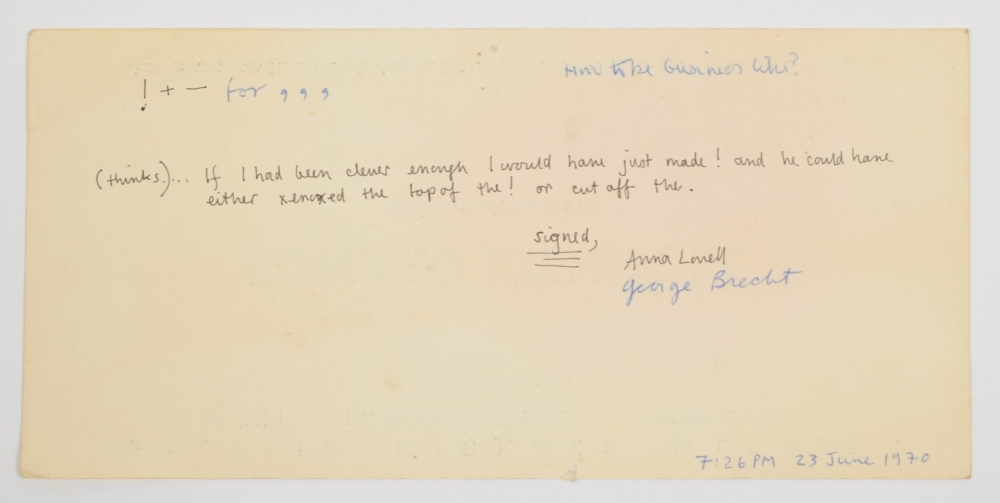 How to be business like?
! + — for , , ,
(thinks.)... If I had been clever enough I would have just made ! and he could have
either xeroxed the top of the ! or cut off the .
signed,
Anna Lovell
George Brecht
7:26 PM 23 June 1970